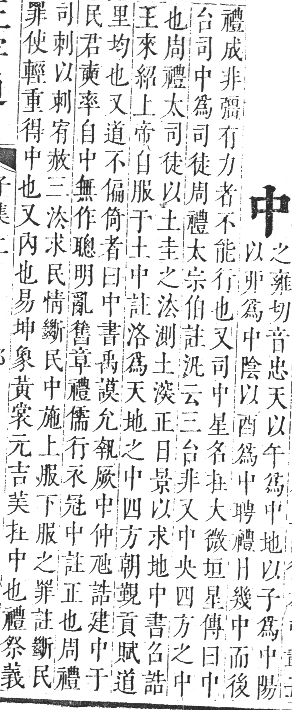 中
之雍切音忠天以午爲中地以子爲中陽
以卯爲中陰以酉爲中聘禮日幾中而後
禮成非彊有力者不能行也又司中星名在大微垣星傳曰中
台司中爲司徒周禮太宗伯註況云三台非又中央四方之中
也周禮太司徒以土圭之法測土深正日景以求地中書召誥
王來紹上帝自服于土中註洛爲天地之中四方朝覲貢賦道
里均也又道不偏倚者曰中書禹謨允執厥中仲虺誥建中于
民君奭率自中無作聰明亂舊章禮儒行衣冠中註正也周禮
司刺以刺宥赦三法求民情斷民中施上服下服之罪註斷民
罪使輕重得中也又内也易坤象黃裳元吉美在中也禮祭義
子集二